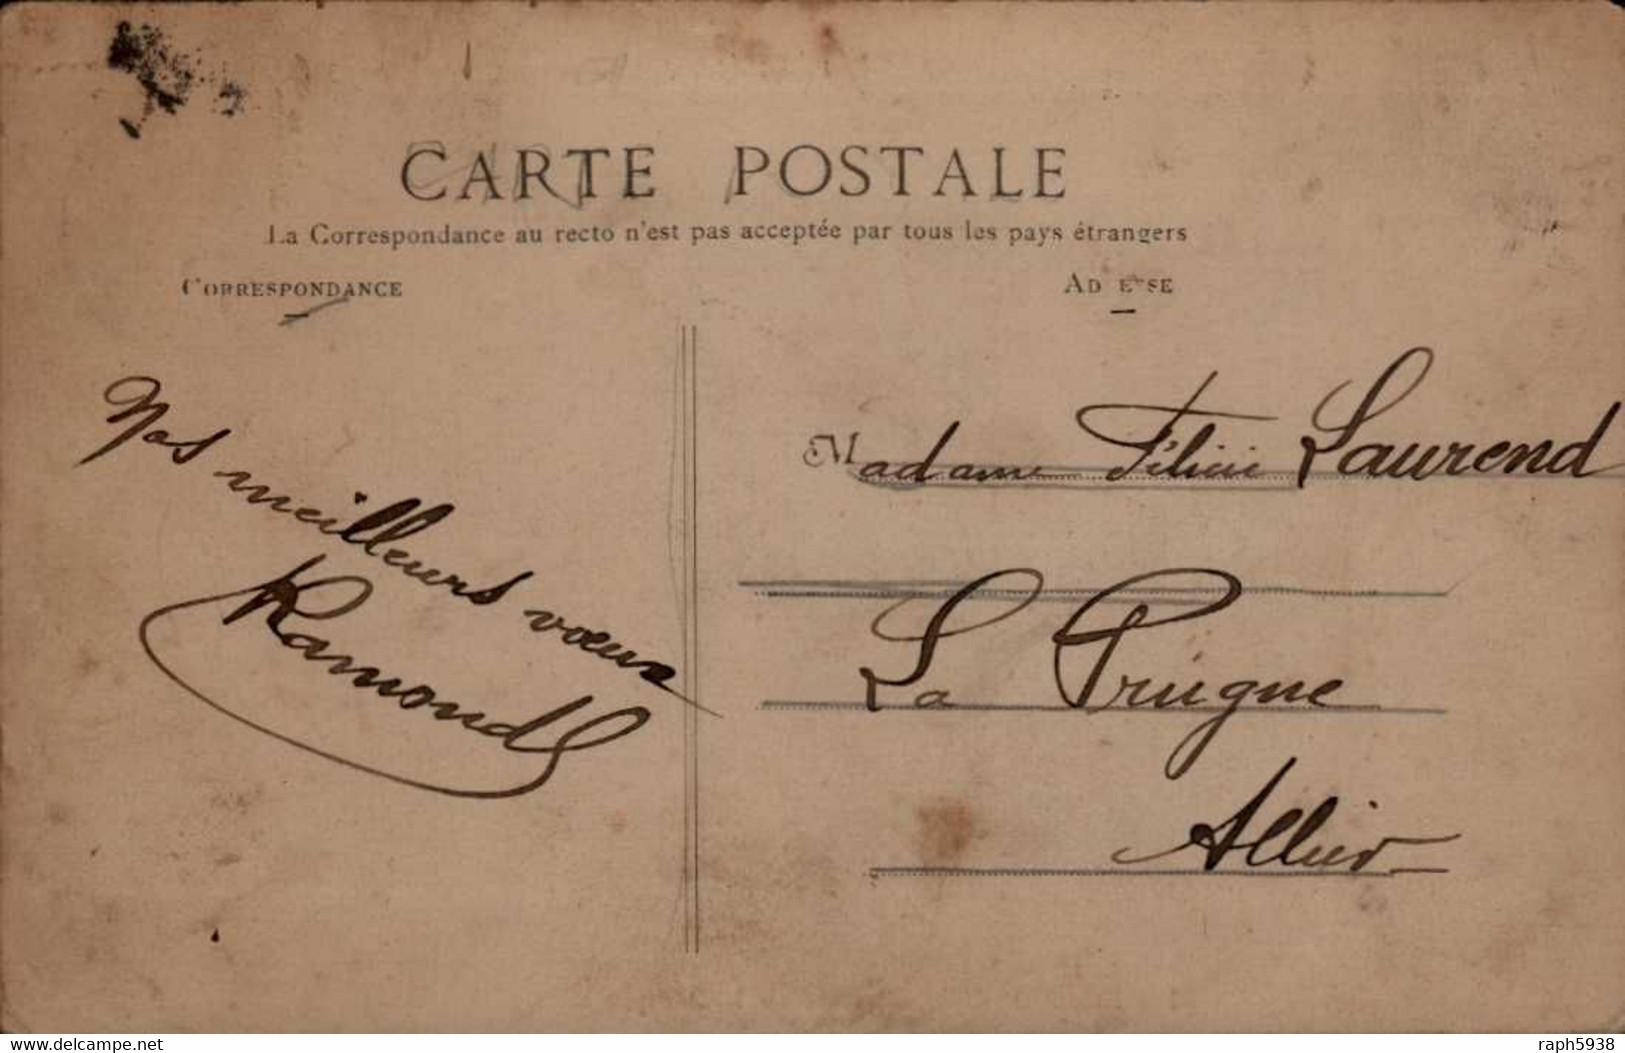 CARTE POSTALE
La Correspondance au recto n'est pas acceptée par tous les pays étrangers
CORRESPONDANCE
AD E SE
Nos meilleurs vœux
Ramond
Madame Laurend
La Prugne
Allier
www.delcampe.net
raph5938